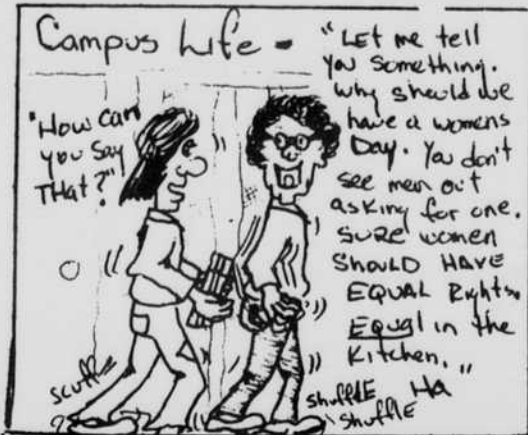 Campus Life -
"How can
you say
THat?"
"LET me tell
you Something.
why should we
have a womens
Day. You don't
see men out
asking for one.
SURE women
SHOULD HAVE
EQUAL Rights.
EQUAl in the
Kitchen."
HA
scuff
shuffLE
shuffLE